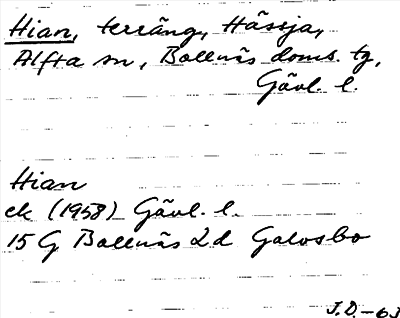 Hian, terräng, Hässja,
Alfta sn, Bollnäs doms. tg,
Gävl. l.
Hian
ek (1958) Gävl. l.
15 G Bollnäs 2d Galvsbo
J.D.-63